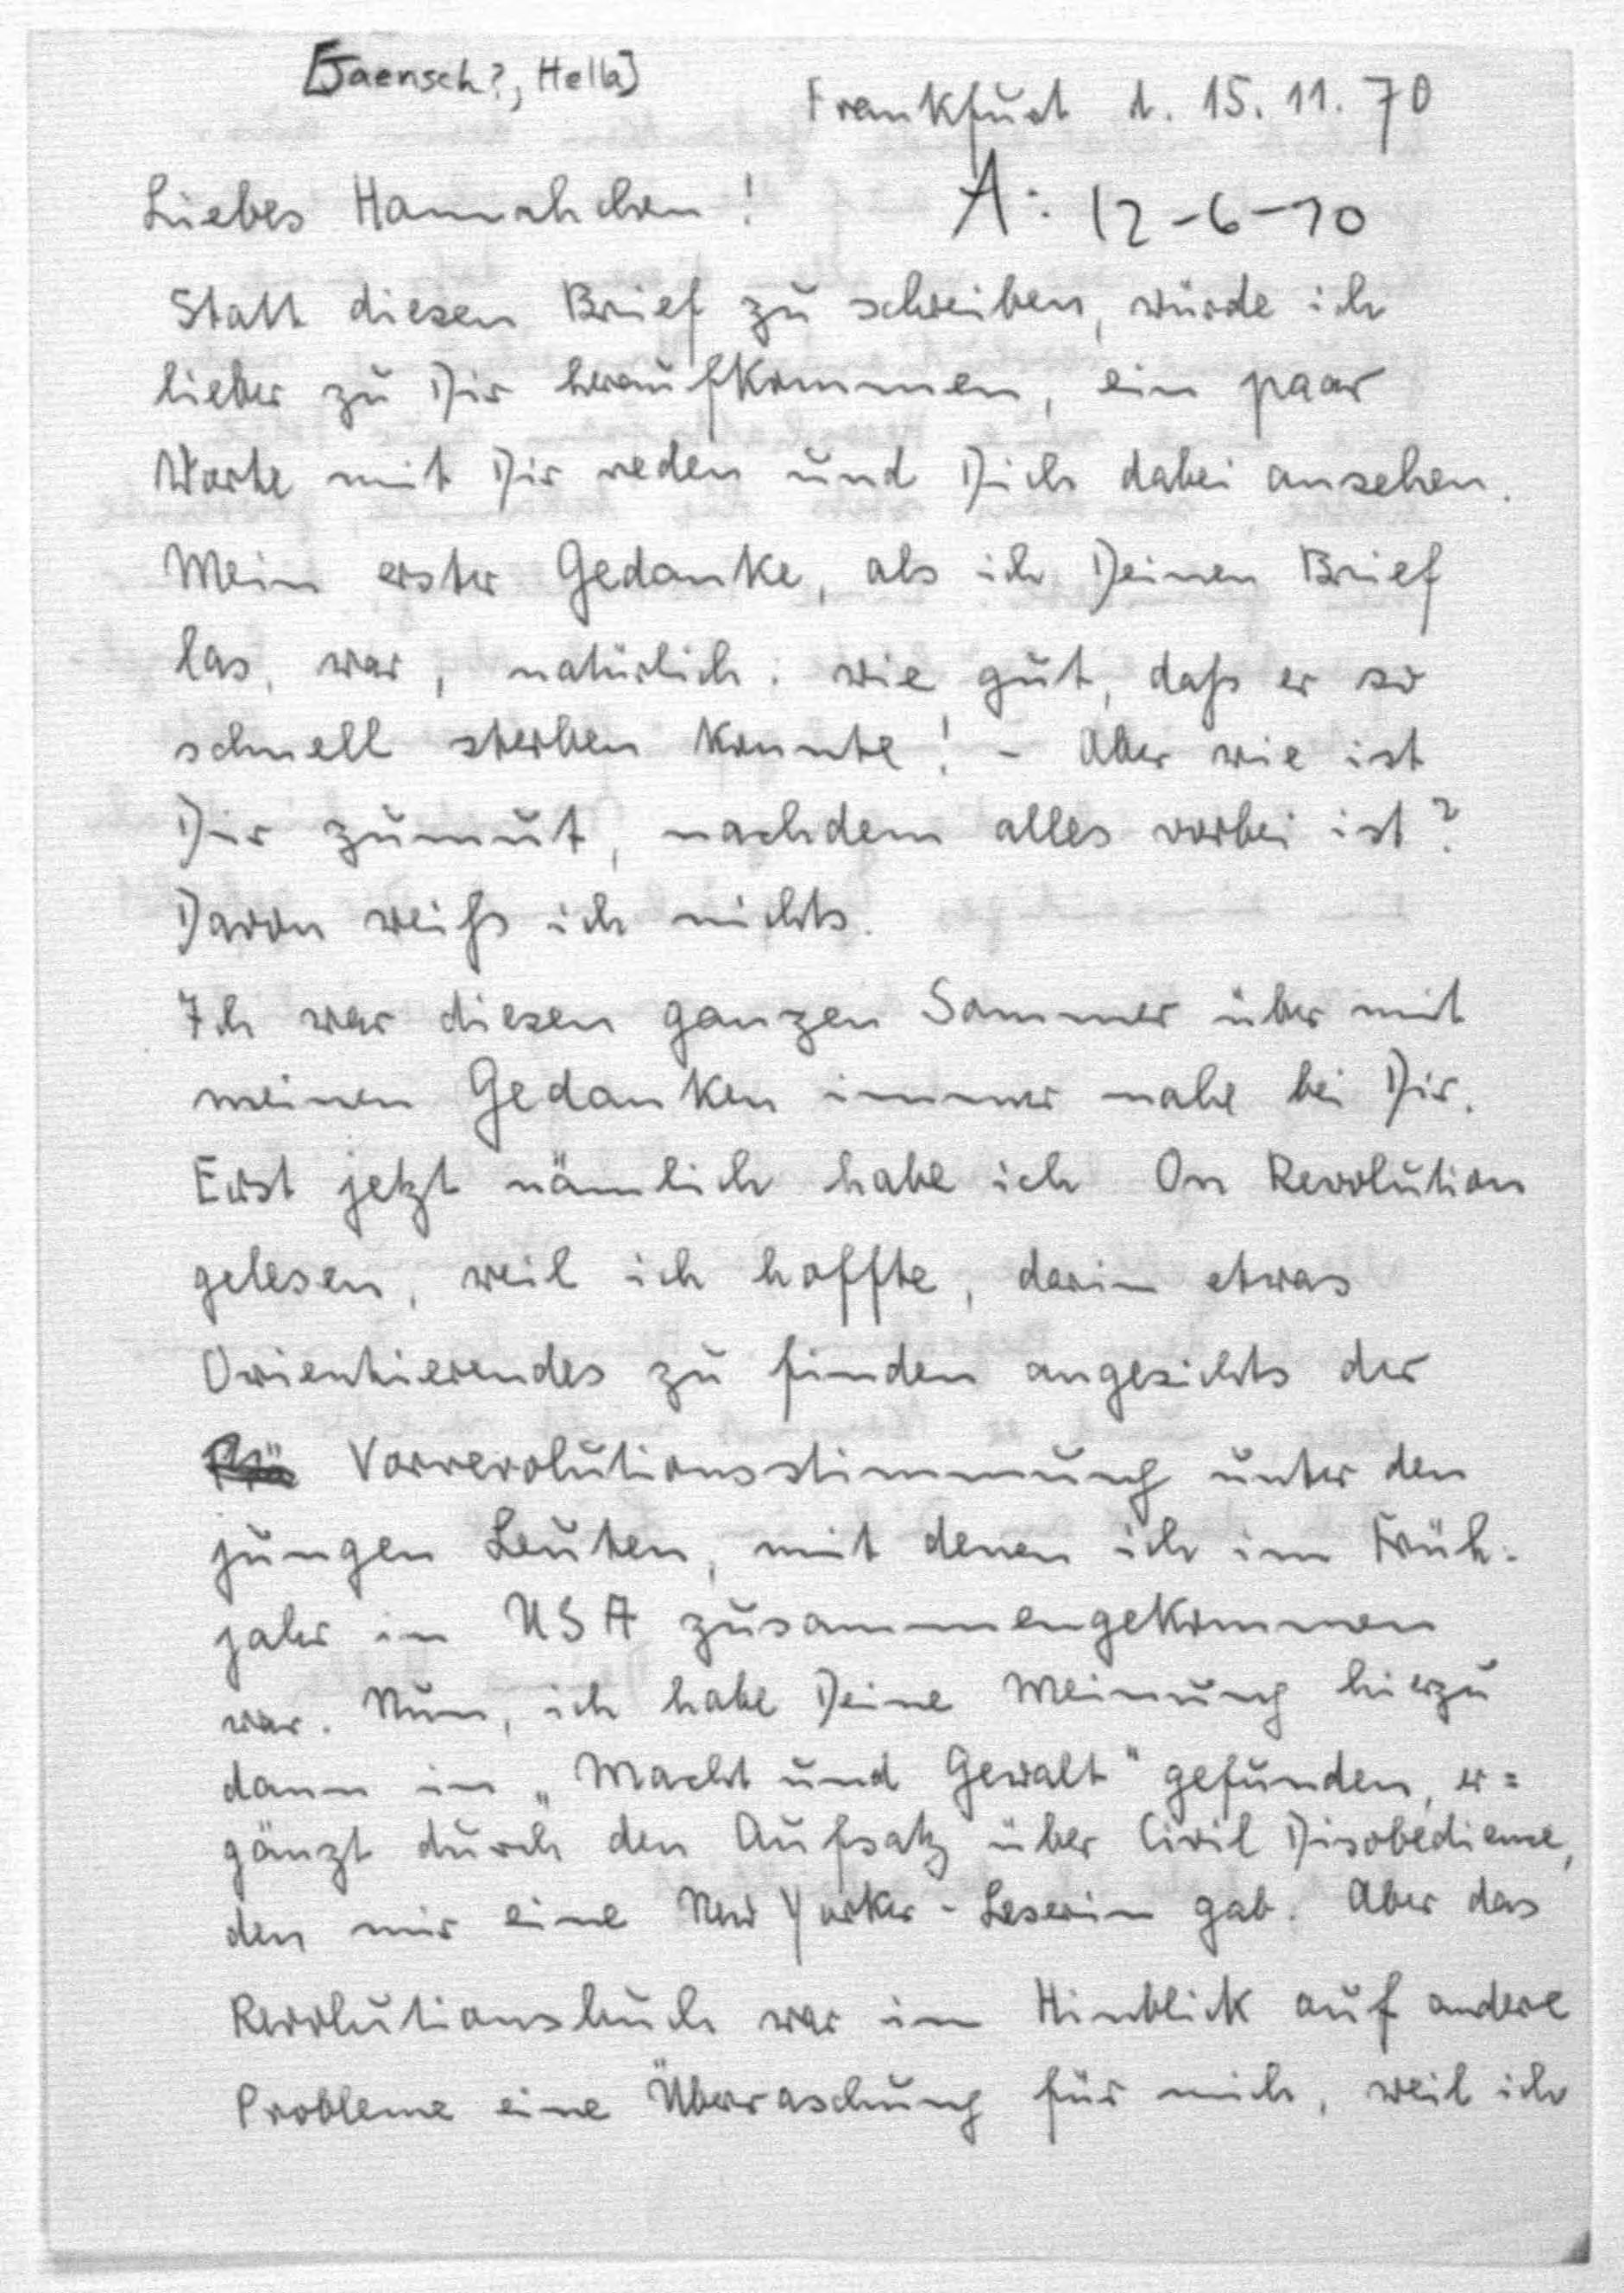 [Jaensch?, Hella]
Frankfurt d. 15. 11. 70
Liebes Hannahchen!
A: 12-6-70
Statt diesen Brief zu schreiben, würde ich
lieber zu Dir heraufkommen, ein paar
Worte mit Dir reden und Dich dabei ansehen.
Mein erster Gedanke, als ich Deinen Brief
las, war, natürlich: wie gut, daß er so
schnell sterben konnte! - Aber wie ist
Dir zumut, nachdem alles vorbei ist?
Davon weiß ich nichts.
Ich war diesen ganzen Sommer über mit
meinen Gedanken immer nahe bei Dir.
Erst jetzt nämlich habe ich On Revolution
gelesen, weil ich hoffte, darin etwas
Orientierendes zu finden angesichts der
Vorrevolutionsstimmung unter den
jungen Leuten, mit denen ich im Früh-
jahr in USA zusammengekommen
war. Nun, ich habe Deine Meinung hierzu
dann in „Macht und Gewalt" gefunden, er=
gänzt durch den Aufsatz über Civil Disobedience,
den mir eine New Yorker-Leserin gab. Aber das
Revolutionsbuch war im Hinblick auf andere
Probleme eine Überraschung für mich, weil ich